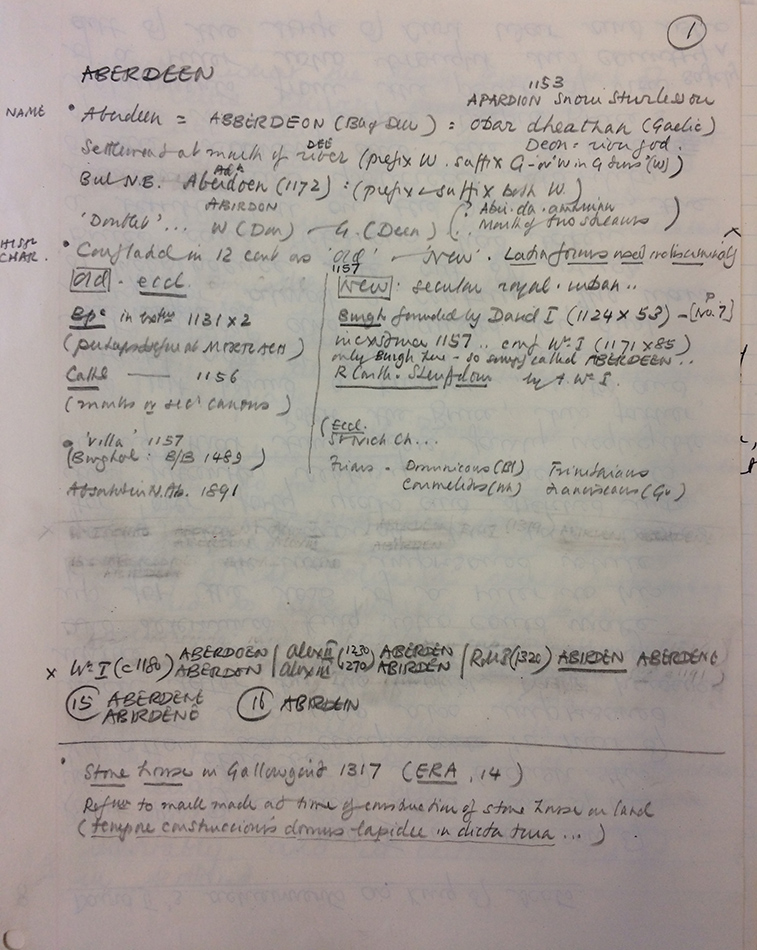 1
ABERDEEN
1153
APARDION Snorri Sturlesson
NAME
• Aberdeen = ABBERDEON (B. of Deer) = obar dheathan (Gaelic)
Settlement at mouth of river (prefix W. suffix G
DEE
Deon = river god.
But N.B. Aberdoen (1172) : (prefix & suffix both W.)
ABIRDON
'Doublet' ... W (Don) G. (Deen) ( Abu-da-aminian
Mouth of two streams )
HIST.
CHAR.
• Conflated in 12 cent as 'Old' 'New'. Latin forms used indiscriminately
Old - eccl.
Bpc in 1131 x 2
(perhaps before at MORTLACH)
Cath 1156
(monks or sec canons)
• 'Villa' 1157
(Burghal : B/B 1489)
Absorbed in N. Ab. 1891
1157
New : secular royal urban ..
Burgh founded by David I (1124 x 53) - [No. 7]
in existence 1157 .. conf Wm. I (1171 x 85)
only Burgh here - so simply called ABERDEEN ..
R Castle. Sherifdom by t. Wm. I.
(Eccl.
St Nich Ch...
Friars - Dominicans (Bl) Trinitarians
Carmelites (Wh) Franciscans (Gr)
x Wm. I (c 1180) ABERDOEN / Alex II (1230) ABERDEN / Rob I (1320) ABIRDEN ABERDENE
ABERDEN / Alex III (1270) ABIRDEN
15 ABERDENE 16 ABIRDEIN
ABIRDENE
• Stone house in Gallowgait 1317 (ERA, 14)
Refce to made at time of construction of stone house on land
(tempore construccionis domus lapidee in dicta terra ...)